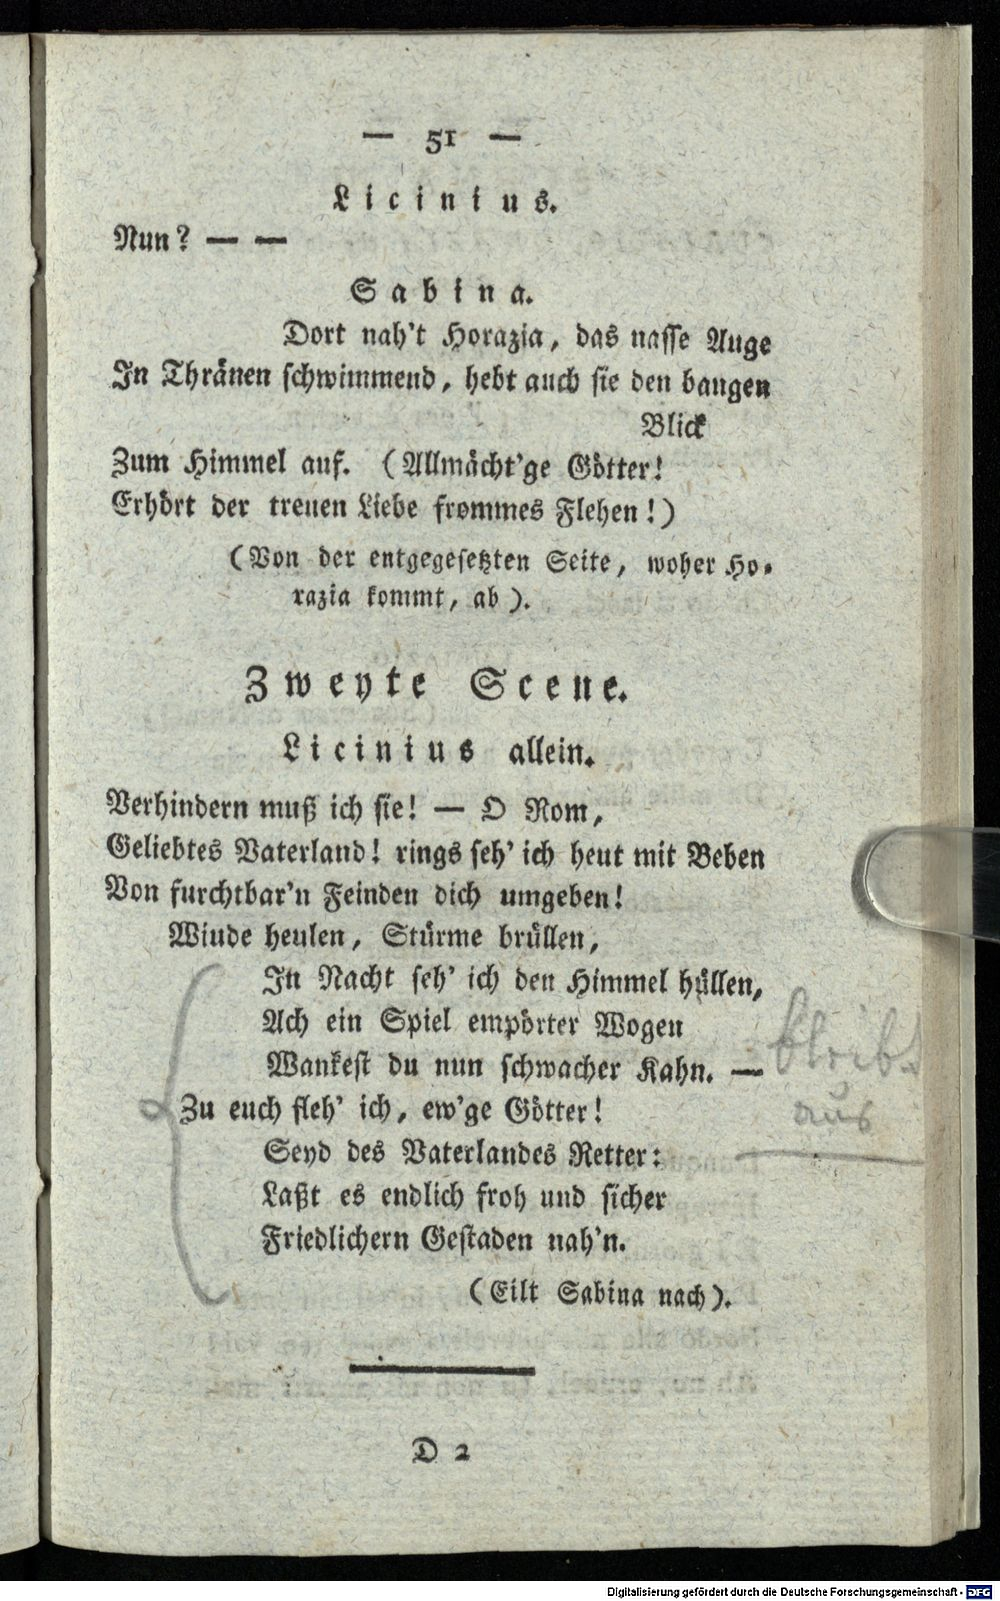 — 51 —
Licinius.
Nun? — —
Sabina.
Dort nah't Horazia, das nasse Auge
In Thränen schwimmend, hebt auch sie den bangen
Blick
Zum Himmel auf. (Allmächt'ge Götter!
Erhört der treuen Liebe frommes Flehen!)
(Von der entgegesetzten Seite, woher Ho-
razia kommt, ab).
Zweyte Scene.
Licinius allein.
Verhindern muß ich sie! — O Rom,
Geliebtes Vaterland! rings seh' ich heut mit Beben
Von furchtbar'n Feinden dich umgeben!
Winde heulen, Stürme brüllen,
In Nacht seh' ich den Himmel hüllen,
Ach ein Spiel empörter Wogen
Wankest du nun schwacher Kahn. —
bleibt
Zu euch fleh' ich, ew'ge Götter!
aus
Seyd des Vaterlandes Retter:
Laßt es endlich froh und sicher
Friedlichern Gestaden nah'n.
(Eilt Sabina nach).
D 2
Digitalisierung gefördert durch die Deutsche Forschungsgemeinschaft - DFG